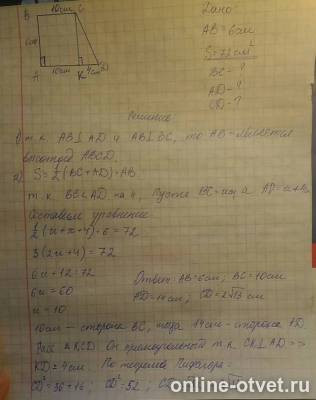 10см
B C
6см
A 10см K 4см D
Дано:
AB = 6см
S = 72 см²
BC = ?
AD = ?
CD = ?
Решение
1) т.к. AB⊥AD и AB⊥BC, то AB является
высотой ABCD.
2) S = ½(BC+AD)·AB
т.к. BC<AD на 4, Пусть BC = x, а AD = x+4
Составим уравнение
½(x+x+4)·6 = 72
3(2x+4) = 72
6x+12 = 72
6x = 60
x = 10
Ответ: AB = 6см; BC = 10см
AD = 14см; CD = 2√13 см
10см – сторона BC, тогда 14см – сторона AD.
Расс. △KCD. Он прямоугольный т.к. CK⊥AD =>
KD = 4см. По теореме Пифагора
CD² = 36+16; CD² = 52;
online-otvet.ru